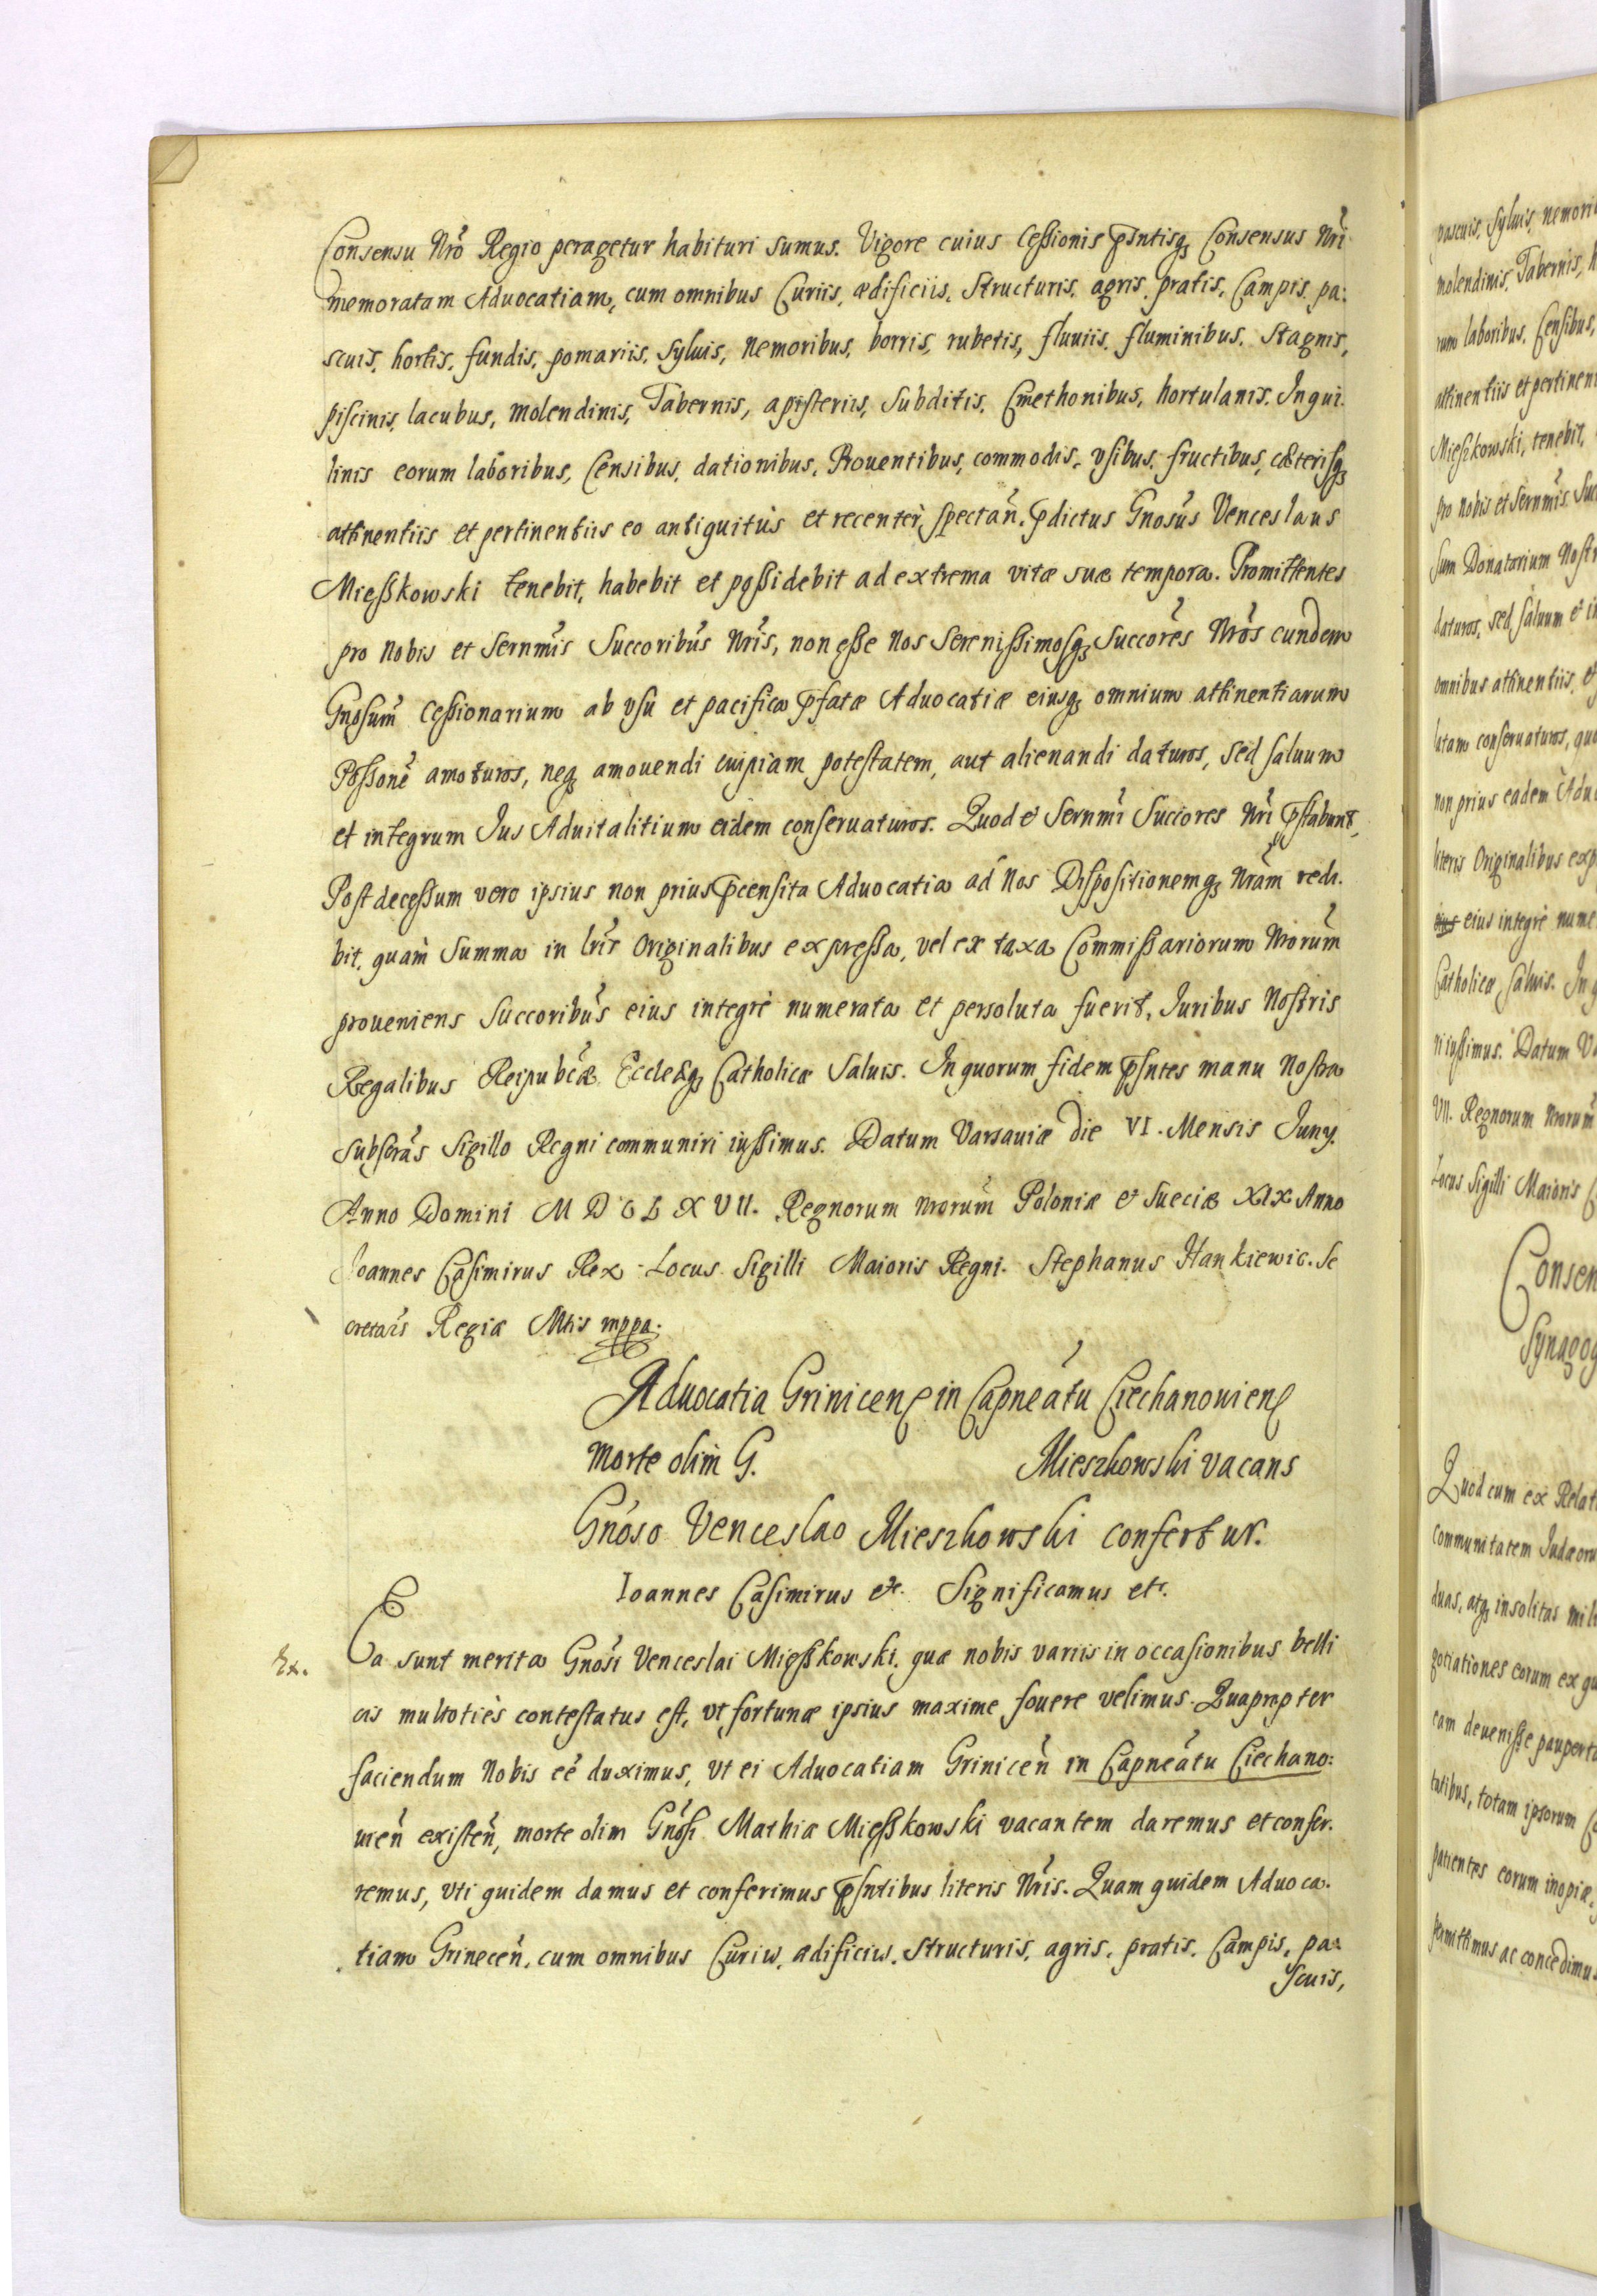 Consensu Nro Regio peragetur habituri sumus. Vigore cuius Cessionis pntisq Consensus Nri
memoratam Aduocatiam, cum omnibus Curiis, ædificiis, Structuris, agris, pratis, Campis, pa:
scuis, hortis, fundis, pomariis, Syluis, Nemoribus, borris, rubetis, fluuiis, fluminibus, Stagnis,
piscinis, lacubus, Molendinis, Tabernis, apisteriis, Subditis, Cmethonibus, hortulanis, Inqui
linis eorum laboribus, Censibus, dationibus, Prouentibus, commodis, vsibus, fructibus, cæterisq
attinentiis et pertinentiis eo antiquitùs et recentèr spectan. pdictus Gnosus Venceslaus
Mieszkowski tenebit, habebit et possidebit ad extrema vitæ suæ tempora. Promittentes
pro Nobis et Sernmis Succoribus Nris, non esse Nos Serenissimosq Succores Nros eundem
Gnosum Cessionarium ab vsu et pacifica pfatæ Aduocatiæ eiusq omnium attinentiarum
Possone amoturos, neq amouendi cuipiam potestatem, aut alienandi daturos, sed saluum
et integrum Ius Aduitalitium eidem conseruaturos. Quod et Sernmi Succores Nri pstabunt,
Post decessum vero ipsius non prius pcensita Aduocatia ad Nos Dispositionemq Nram redi
bit, quàm Summa in lris Originalibus expressa, vel ex taxa Commissariorum Nrorum
proueniens Succoribus eius integrè numerata et persoluta fuerit, Iuribus Nostris
Regalibus Reipubcæ Ecclæq Catholicæ Saluis. In quorum fidem pntes manu Nostra
subscras Sigillo Regni communiri iussimus. Datum Varsauiæ die VI. Mensis Iuny.
Anno Domini M D C L X VII. Regnorum Nrorum Poloniæ et Sueciæ XIX Anno
Ioannes Casimirus Rex. Locus Sigilli Maioris Regni. Stephanus Hankiewic. Se
cretars Regiæ Mtis mppa.
Aduocatia Grinicen in Capneatu Ciechanouien
Morte olim G. Mieszkowski vacans
Gnoso Venceslao Mieszkowski confertur.
Ioannes Casimirus etc. Significamus etc.
Ex.
Ea sunt merita Gnosi Venceslai Mieszkowski, quæ nobis variis in occasionibus belli
cis multotiès contestatus est, vt fortunæ ipsius maxime fouere velimus. Quapropter
faciendum Nobis eé duximus, vt ei Aduocatiam Grinicen in Capneatu Ciechano:
uien existen, morte olim Gnosi Mathiæ Mieszkowski vacantem daremus et confer.
remus, vti quidem damus et conferimus pntibus literis Nris. Quam quidem Aduoca.
tiam Grinecen. cum omnibus Curiis, ædificiis, structuris, agris, pratis, Campis, pa:
scuis,
pascuis, Syluis, nemori
molendinis, Tabernis, h
rum laboribus, Censibus,
attinentiis et pertinen
Mieszkowski, tenebit,
pro Nobis et Sernmis Suc
sum Donatarium Nostr
daturos, sed saluum et in
omnibus attinentiis, et
latam conseruaturos, quo
non prius eadem Adu
literis Originalibus exp
eius eius integrè nume
Catholicæ, Saluis. In q
ri iussimus. Datum Va
VII. Regnorum Nrorum
Locus Sigilli Maioris
Consen
Synagog
Quod cum ex Relat
Communitatem Iudæoru
duas, atq insolitas mili
gotiationes eorum ex qu
eam deuenisse pauperta
tatibus, totam ipsorum
patientes eorum inopiæ,
permittimus ac concedimus